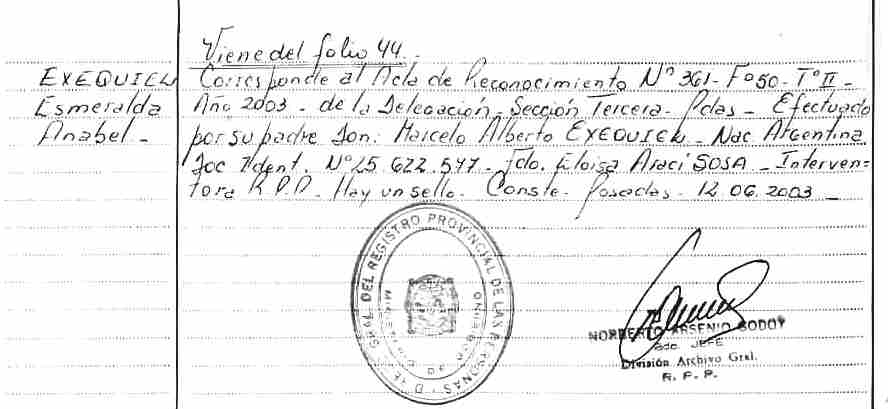 Viene del folio 44.-
EXEQUIEL Corresponde al Acta de Reconocimiento Nº 361- Fº 50- Tº II -
Esmeralda Año 2003 - de la Delegación- Sección Tercera- Pdas - Efectuado
Anabel - por su padre Don: Marcelo Alberto EXEQUIEL - Nac Argentina
Doc Ident. Nº 25.622.577 - Fdo. Eloisa Araci SOSA - Interven-
tora R.P.P - Hay un sello. Conste- Posadas- 12.06.2003 -
GRAL. DEL REGISTRO PROVINCIAL DE LAS PERSONAS
NORBERTO ARSENIO GODOY
JEFE
División Archivo Gral.
R. P. P.